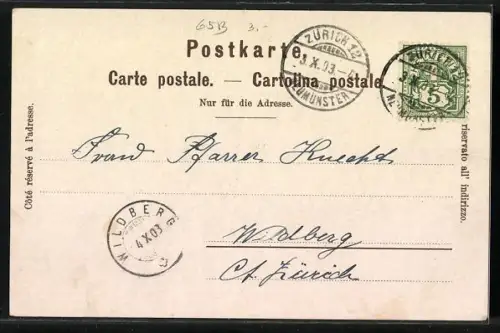 65B 3.-
Postkarte.
Carte postale. — Cartolina postale
Nur für die Adresse.
Côté réservé à l'adresse.
riservato all' indirizzo.
ZÜRICH 12
3.X.03-4
NEUMÜNSTER
5
Frau Pfarrer Knecht
Wildberg
Ct. Zürich
WILDBERG
4.X.03